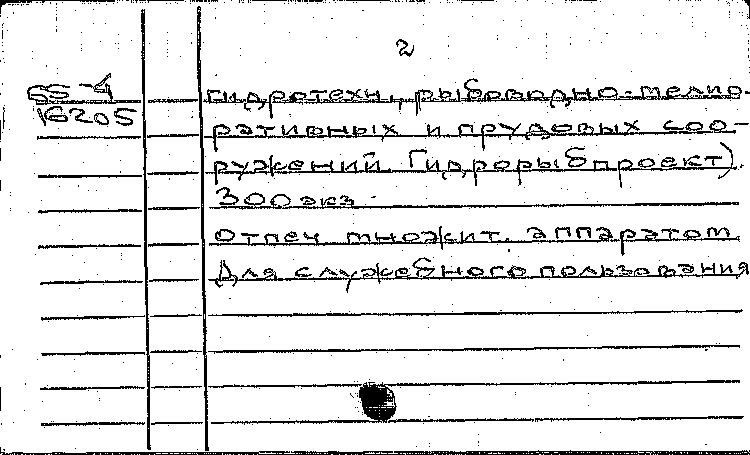 2
55-4
16205
гидротехн., рыбоводно-мелио-
ративных и прудовых соо-
ружений Гидрорыбпроект).
300 экз.
Отпеч. множит. аппаратом.
Для служебного пользования